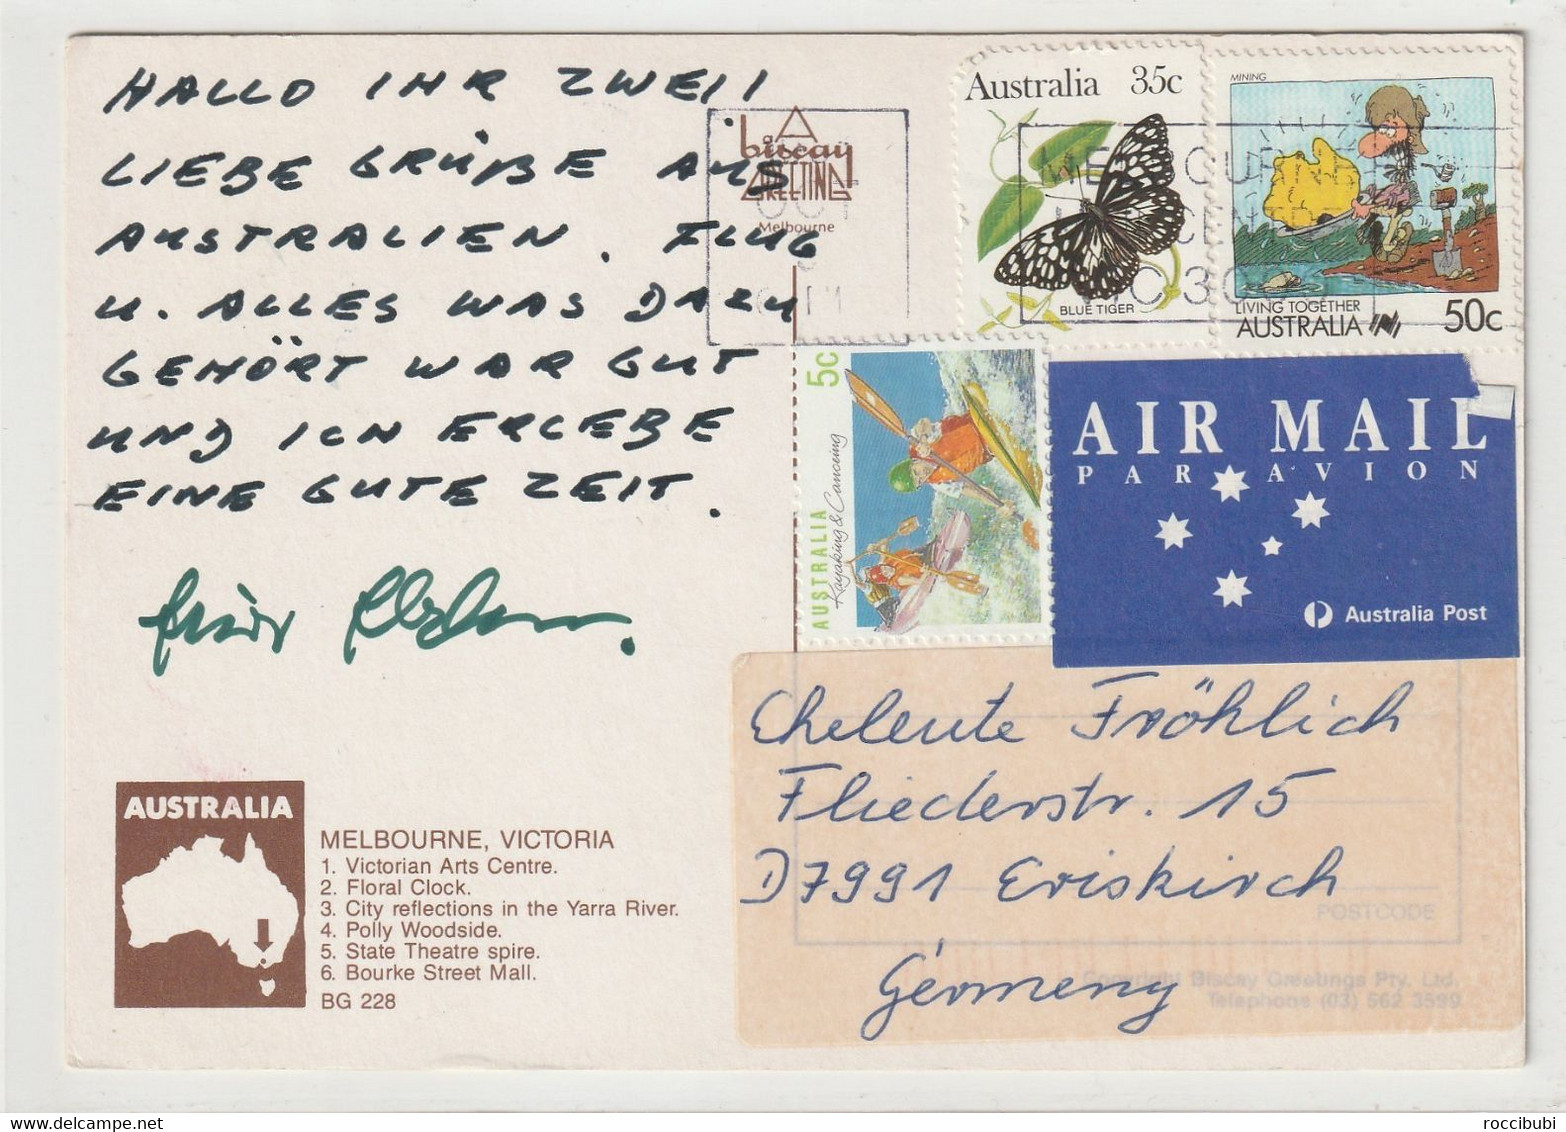 HALLO IHR ZWEI!
LIEBE GRÜßE AUS
AUSTRALIEN. FLUG
U. ALLES WAS DAZU
GEHÖRT WAR GUT
UND ICH ERLEBE
EINE GUTE ZEIT.
AUSTRALIA
MELBOURNE, VICTORIA
1. Victorian Arts Centre.
2. Floral Clock.
3. City reflections in the Yarra River.
4. Polly Woodside.
5. State Theatre spire.
6. Bourke Street Mall.
BG 228
biscay
GREETINGS
Melbourne
OCT
Australia 35c
BLUE TIGER
MINING
LIVING TOGETHER
AUSTRALIA 50c
MELBOURNE
VIC 30
5c
AUSTRALIA
Kayaking & Canoeing
AIR MAIL
PAR AVION
Australia Post
Eheleute Fröhlich
Fliederstr. 15
D 7991 Eriskirch
Germeny
POSTCODE
Copyright Biscay Greetings Pty. Ltd.
Telephone (03) 562 3599
roccibubi